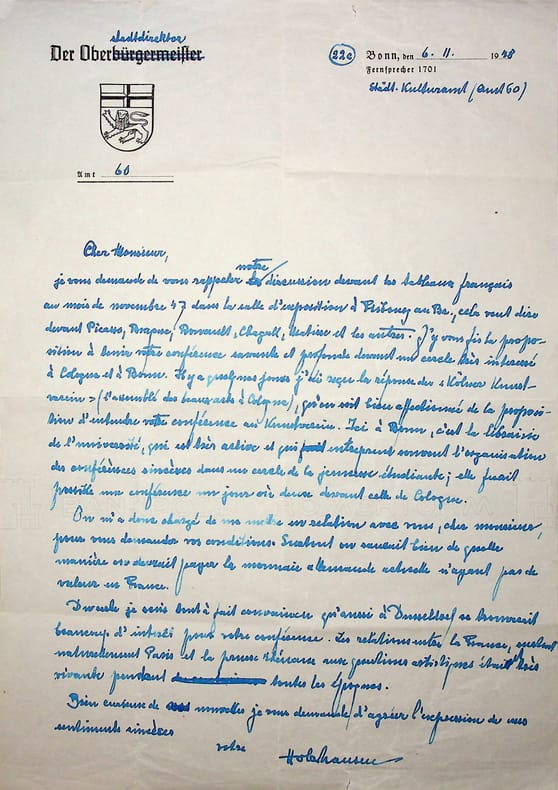 stadtdirektor
Der Oberbürgermeister
22c Bonn, den 6. 11. 1948
Fernsprecher 1701
Städt. Kulturamt (Amt 60)
Amt 60
Cher Monsieur,
notre
je vous demande de vous rappeler discussion devant les tableaux français
au mois de novembre 47 dans la salle d'exposition à Fribourg au Br., cela veut dire
devant Picasso, Braque, Rouault, Chagall, Matisse et les autres. J'y vous fis la propo-
sition à tenir votre conférence savante et profonde devant un cercle très interessé
à Cologne et à Bonn. Il y a quelques jours j'ai reçu la réponse du «Kölner Kunst-
verein» (l'assemblé des beaux arts à Cologne), qu'on soit bien affectionné de la proposi-
tion d'entendre votre conférence au Kunstverein. Ici à Bonn, c'est la librairie
de l'université, qui est très active et qui entreprend souvent l'organisation
des conférences sincères dans un cercle de la jeunesse étudiante; elle
possible une conférence un jour où deux devant celle de Cologne.
On m'a donc chargé de me mettre en relation avec vous, cher monsieur,
pour vous demander vos conditions. Surtout on saurait bien de quelle
manière on devrait payer la monnaie allemande actuelle n'ayant pas de
valeur en France.
je suis tout à fait convaincu qu'aussi à Dusseldorf se trouverait
beaucoup d'intérêt pour votre conférence. Les relations entre la France,
naturellement Paris et la rhénane aux questions artistiques était très
vivante pendant toutes les
Bien curieux de nouvelles je vous demande d'agréer l'expression de mes
sentiments sincères
votre
Holzhausen